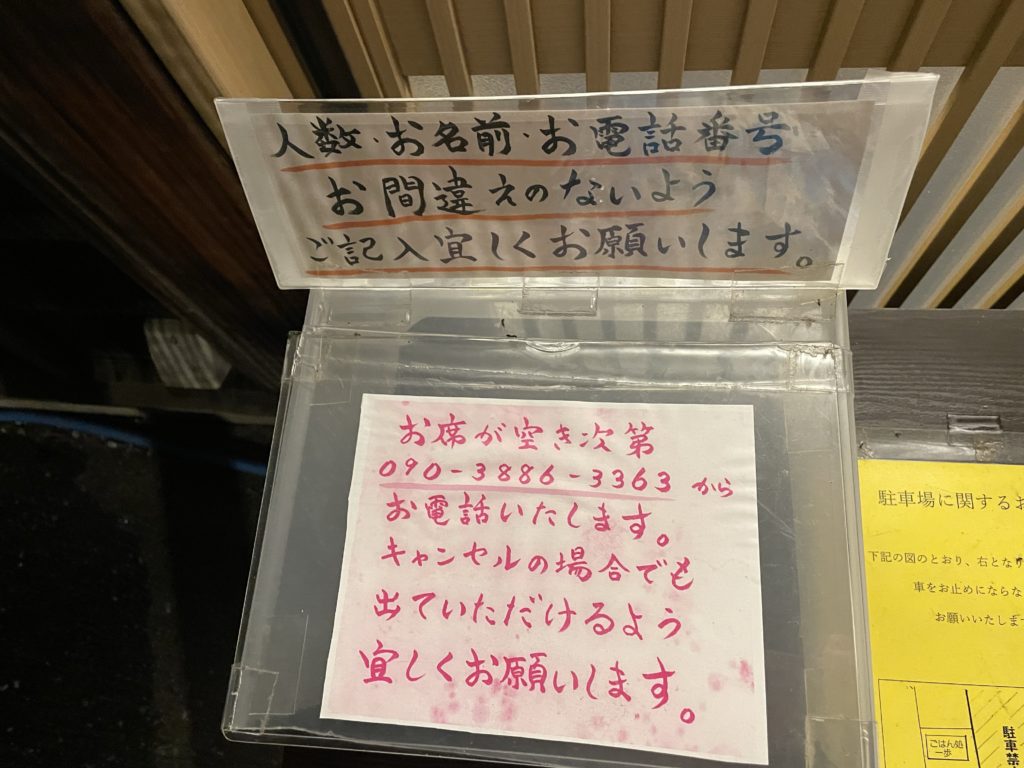 人数・お名前・お電話番号
お間違えのないよう
ご記入宜しくお願いします。
お席が空き次第
090-3886-3363から
お電話いたします。
キャンセルの場合でも
出ていただけるよう
宜しくお願いします。
駐車場に関するお
下記の図のとおり、右とな
車をお止めにならな
お願いいたしま
ごはん処
一歩
駐車禁